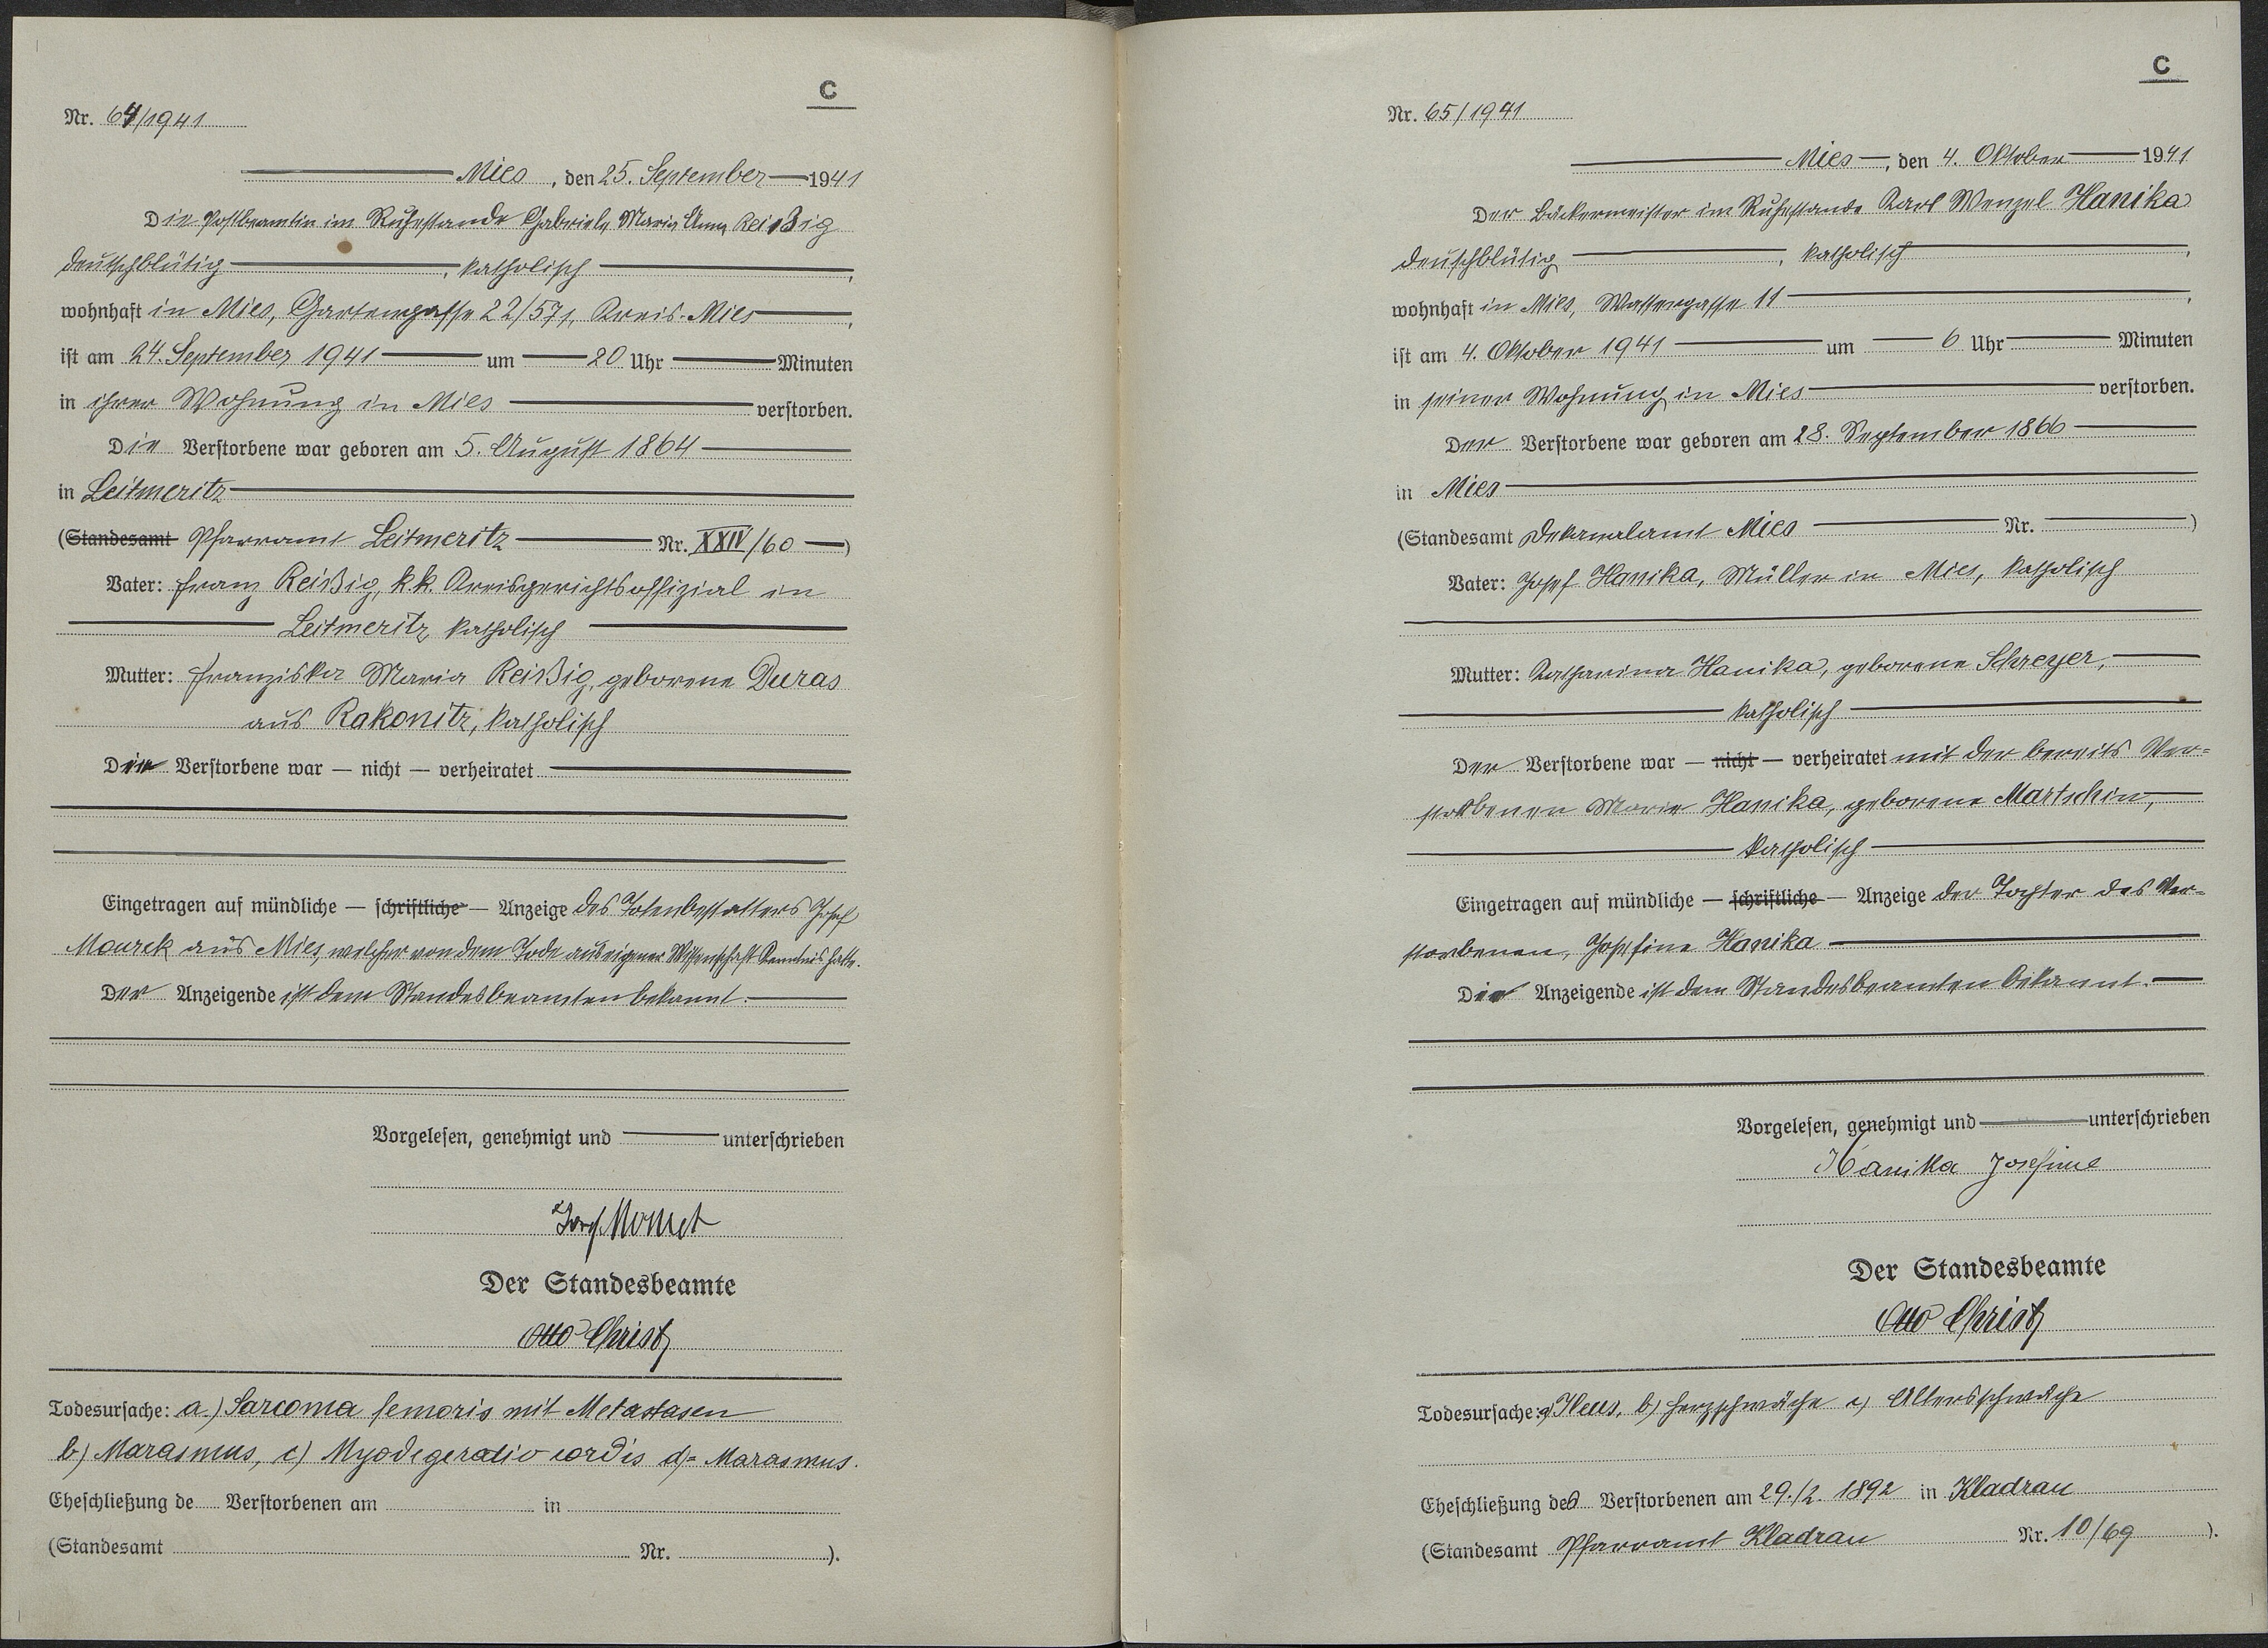 C
Nr. 64/1941
Mies, den 25. September 1941
Die Postbeamtin im Ruhestande Gabriele Maria Anna Reißig
deutschblütig, katholisch,
wohnhaft in Mies, Gartengasse 22/571, Kreis Mies,
ist am 24. September 1941 um 20 Uhr Minuten
in ihrer Wohnung in Mies verstorben.
Die Verstorbene war geboren am 5. August 1864
in Leitmeritz
(Standesamt Pfarramt Leitmeritz Nr. XXIV/60)
Vater: Franz Reißig, k.k. Kreisgerichtsoffizial in
Leitmeritz, katholisch
Mutter: Franziska Maria Reißig, geborene Duras
aus Rakonitz, katholisch
Die Verstorbene war — nicht — verheiratet
Eingetragen auf mündliche — schriftliche — Anzeige des Totenbestatters Josef
Mourek aus Mies, welcher von dem Tode aus eigener Wissenschaft Kenntnis hatte.
Der Anzeigende ist dem Standesbeamten bekannt.
Vorgelesen, genehmigt und unterschrieben
Josef
Der Standesbeamte
Otto Christ
Todesursache: a.) Sarcoma femoris mit Metastasen
b) Marasmus, c) Myodegeratio cordis d)= Marasmus.
Eheschließung de Verstorbenen am in
(Standesamt Nr. ).
C
Nr. 65/1941
Mies, den 4. Oktober 1941
Der Bäckermeister im Ruhestande Karl Wenzel Hanika
deutschblütig, katholisch,
wohnhaft in Mies, Wassergasse 11,
ist am 4. Oktober 1941 um 6 Uhr Minuten
in seiner Wohnung in Mies verstorben.
Der Verstorbene war geboren am 28. September 1866
in Mies
(Standesamt Dekanalamt Mies Nr. )
Vater: Josef Hanika, Müller in Mies, katholisch
Mutter: Katharina Hanika, geborene Schreyer,
katholisch
Der Verstorbene war — nicht — verheiratet mit der bereits Ver=
storbenen Marie Hanika, geborene Martschin,
katholisch
Eingetragen auf mündliche — schriftliche — Anzeige der Tochter des Ver-
storbenen, Josefine Hanika
Die Anzeigende ist dem Standesbeamten bekannt.
Vorgelesen, genehmigt und unterschrieben
Hanika Josefine
Der Standesbeamte
Otto Christ
Todesursache: a) Ileus, b) Herzschwäche c) Altersschwäche
Eheschließung des Verstorbenen am 29./2. 1892 in Kladrau
(Standesamt Pfarramt Kladrau Nr. 10/69 ).